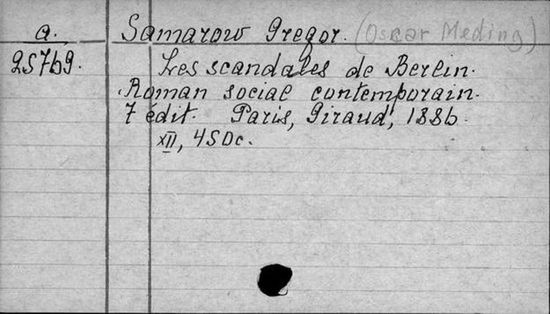 a. Samarow Gregor. (Oscar Meding)
25769. Les scandales de Berlin.
Roman social contemporain.
7 édit. Paris, Giraud, 1886.
XII, 450c.